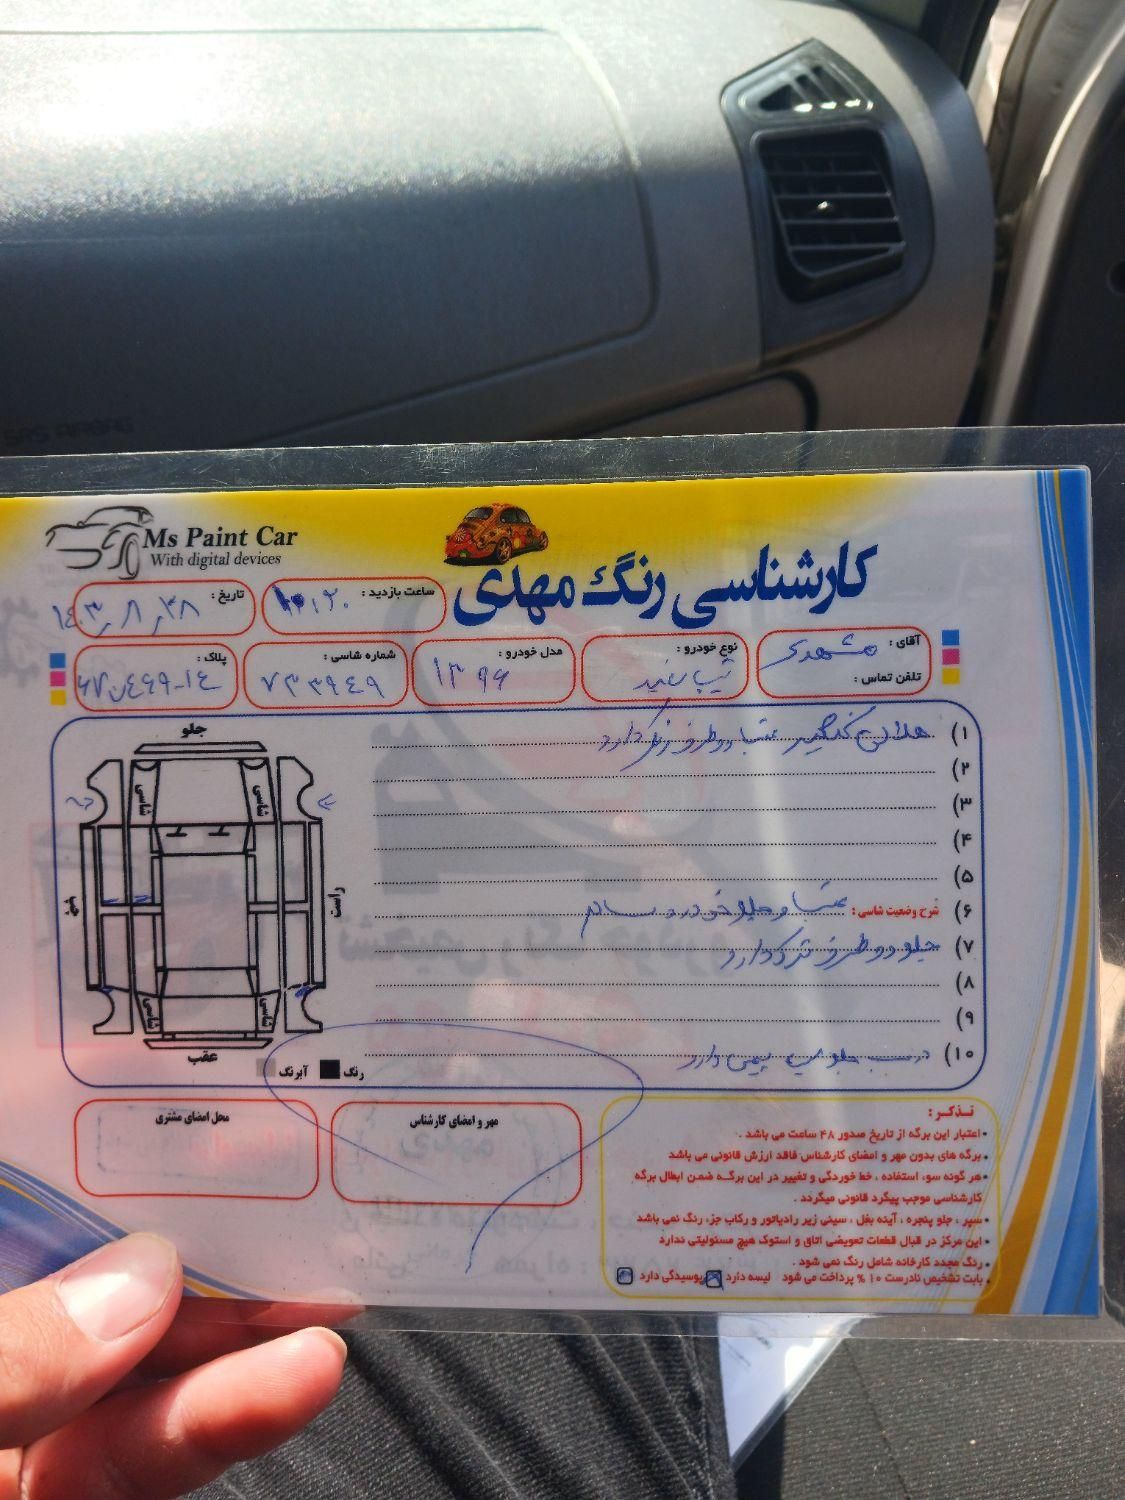 SRS AIRBAG
Ms Paint Car
With digital devices
کارشناسی رنگ مهدی
ساعت بازدید :
تاریخ : ۱۴۰۳/۸/۲۸
آقای : مشهدی
تلفن تماس :
نوع خودرو : تیپ سفید
مدل خودرو : ۱۳۹۶
شماره شاسی : ۷۳۳۹۴۹
پلاک :
۱) گلگیر عقب دو طرف رنگ دارد
۲)
۳)
۴)
۵)
۶) شرح وضعیت شاسی : عقب و جلو خودرو سالم
۷) جلو دو طرف ترک دارد
۸)
۹)
۱۰) درب جلو چپ دارد
جلو
شاسی
شاسی
چپ
راست
شاسی
شاسی
عقب
رنگ
آبرنگ
محل امضای مشتری
مهر و امضای کارشناس
تذکر :
• اعتبار این برگه از تاریخ صدور ۴۸ ساعت می باشد .
• برگه های بدون مهر و امضای کارشناس فاقد ارزش قانونی می باشد
• هر گونه سوء استفاده ، خط خوردگی و تغییر در این برگه ضمن ابطال برگه
کارشناسی موجب پیگرد قانونی میگردد .
• سپر ، جلو پنجره ، آینه بغل ، سینی زیر رادیاتور و رکاب جزء رنگ نمی باشد
• این مرکز در قبال قطعات تعویضی اتاق و استوک هیچ مسئولیتی ندارد
• رنگ مجدد کارخانه شامل رنگ نمی شود .
• بابت تشخیص نادرست ۱۰ % پرداخت می شود لیسه دارد پوسیدگی دارد